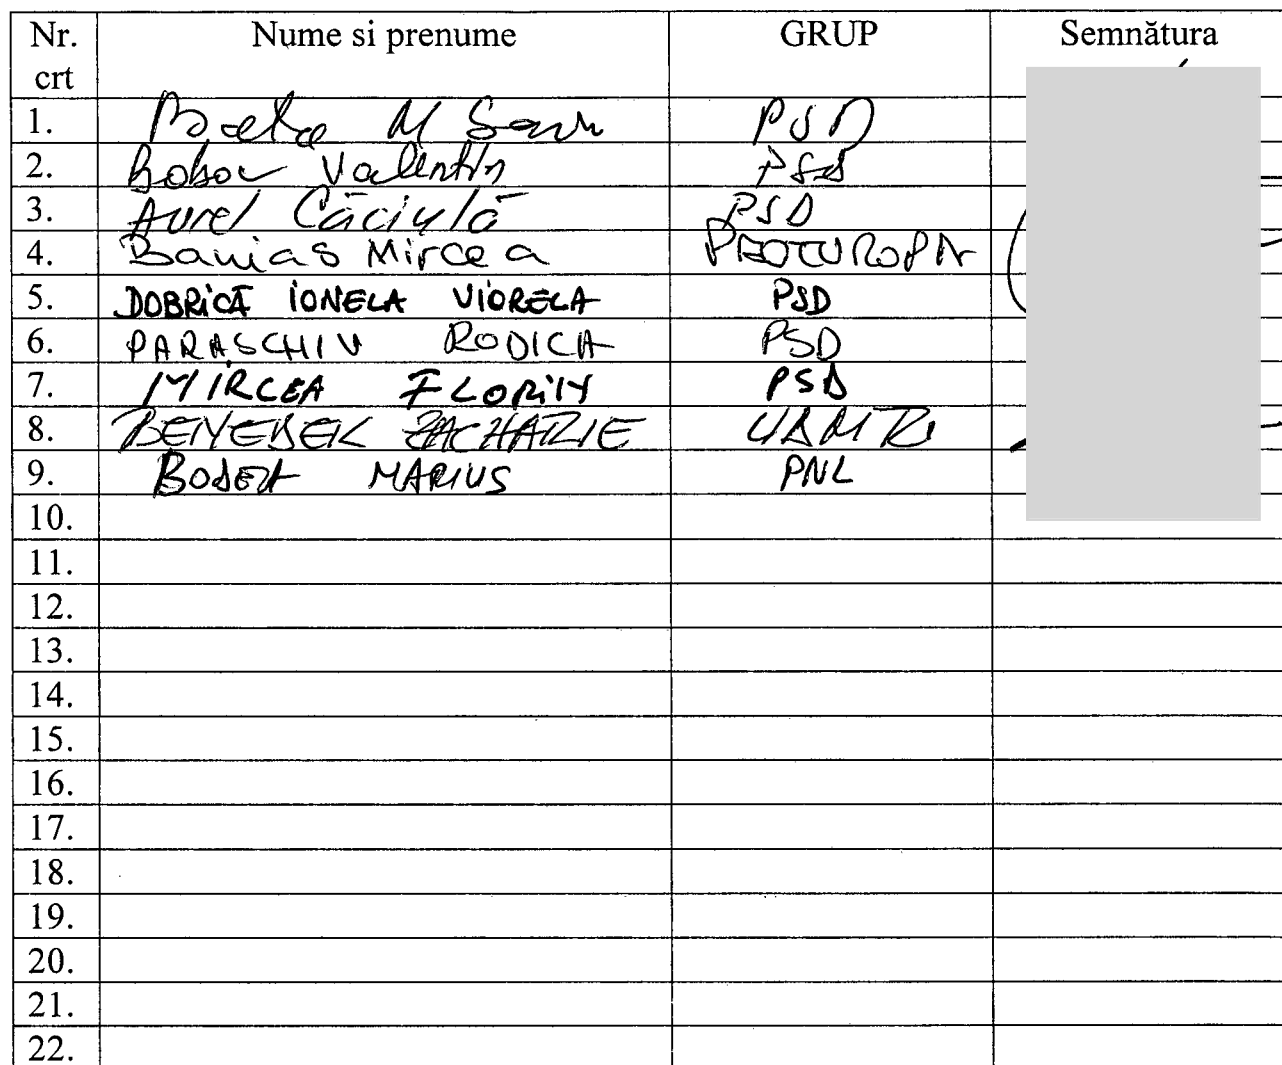 Nr. crt Nume si prenume GRUP Semnătura
1. M PSD
2. Valentin PSD
3. Aurel Căciulă PSD
4. Banias Mircea
5. DOBRICĂ IONELA VIORELA PSD
6. PARASCHIV RODICA PSD
7. MIRCEA FLORIN PSD
8. ZACHARIE
9. BODEA MARIUS PNL
10.
11.
12.
13.
14.
15.
16.
17.
18.
19.
20.
21.
22.